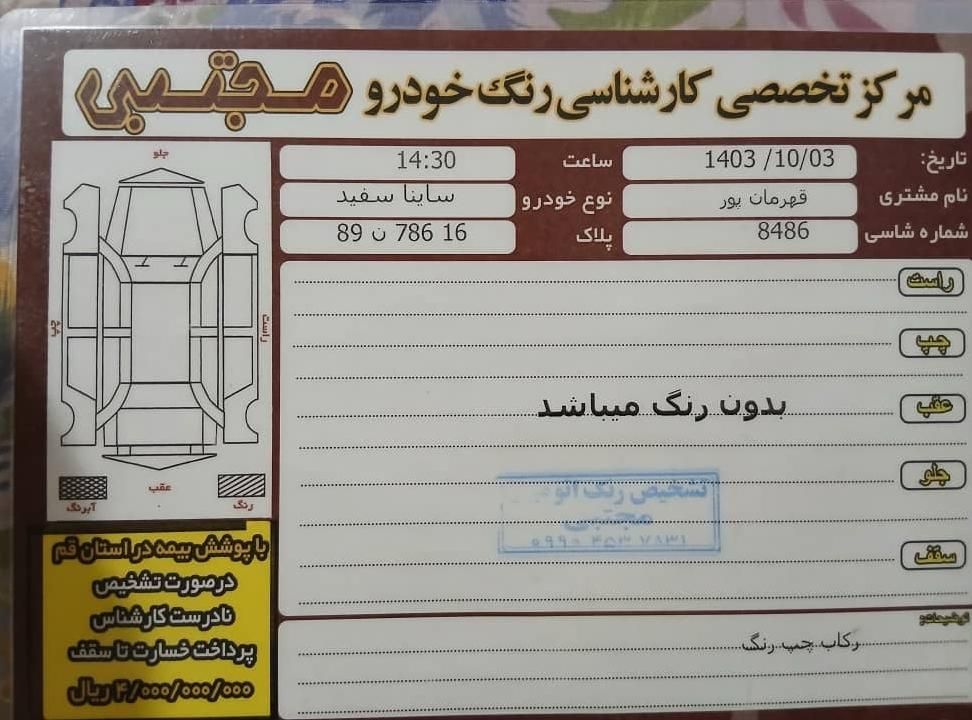 مرکز تخصصی کارشناسی رنگ خودرو مجتبی
تاریخ: 1403 /10/03 ساعت 14:30
نام مشتری قهرمان پور نوع خودرو ساینا سفید
شماره شاسی 8486 پلاک 16 786 ن 89
جلو
راست
چپ
عقب
رنگ
آبرنگ
راست
چپ
عقب
بدون رنگ میباشد
جلو
سقف
تشخیص رنگ اتو
مجتبی
با پوشش بیمه در استان قم
درصورت تشخیص
نادرست کارشناس
پرداخت خسارت تا سقف
۴/۰۰۰/۰۰۰/۰۰۰ ریال
توضیحات:
رکاب چپ رنگ